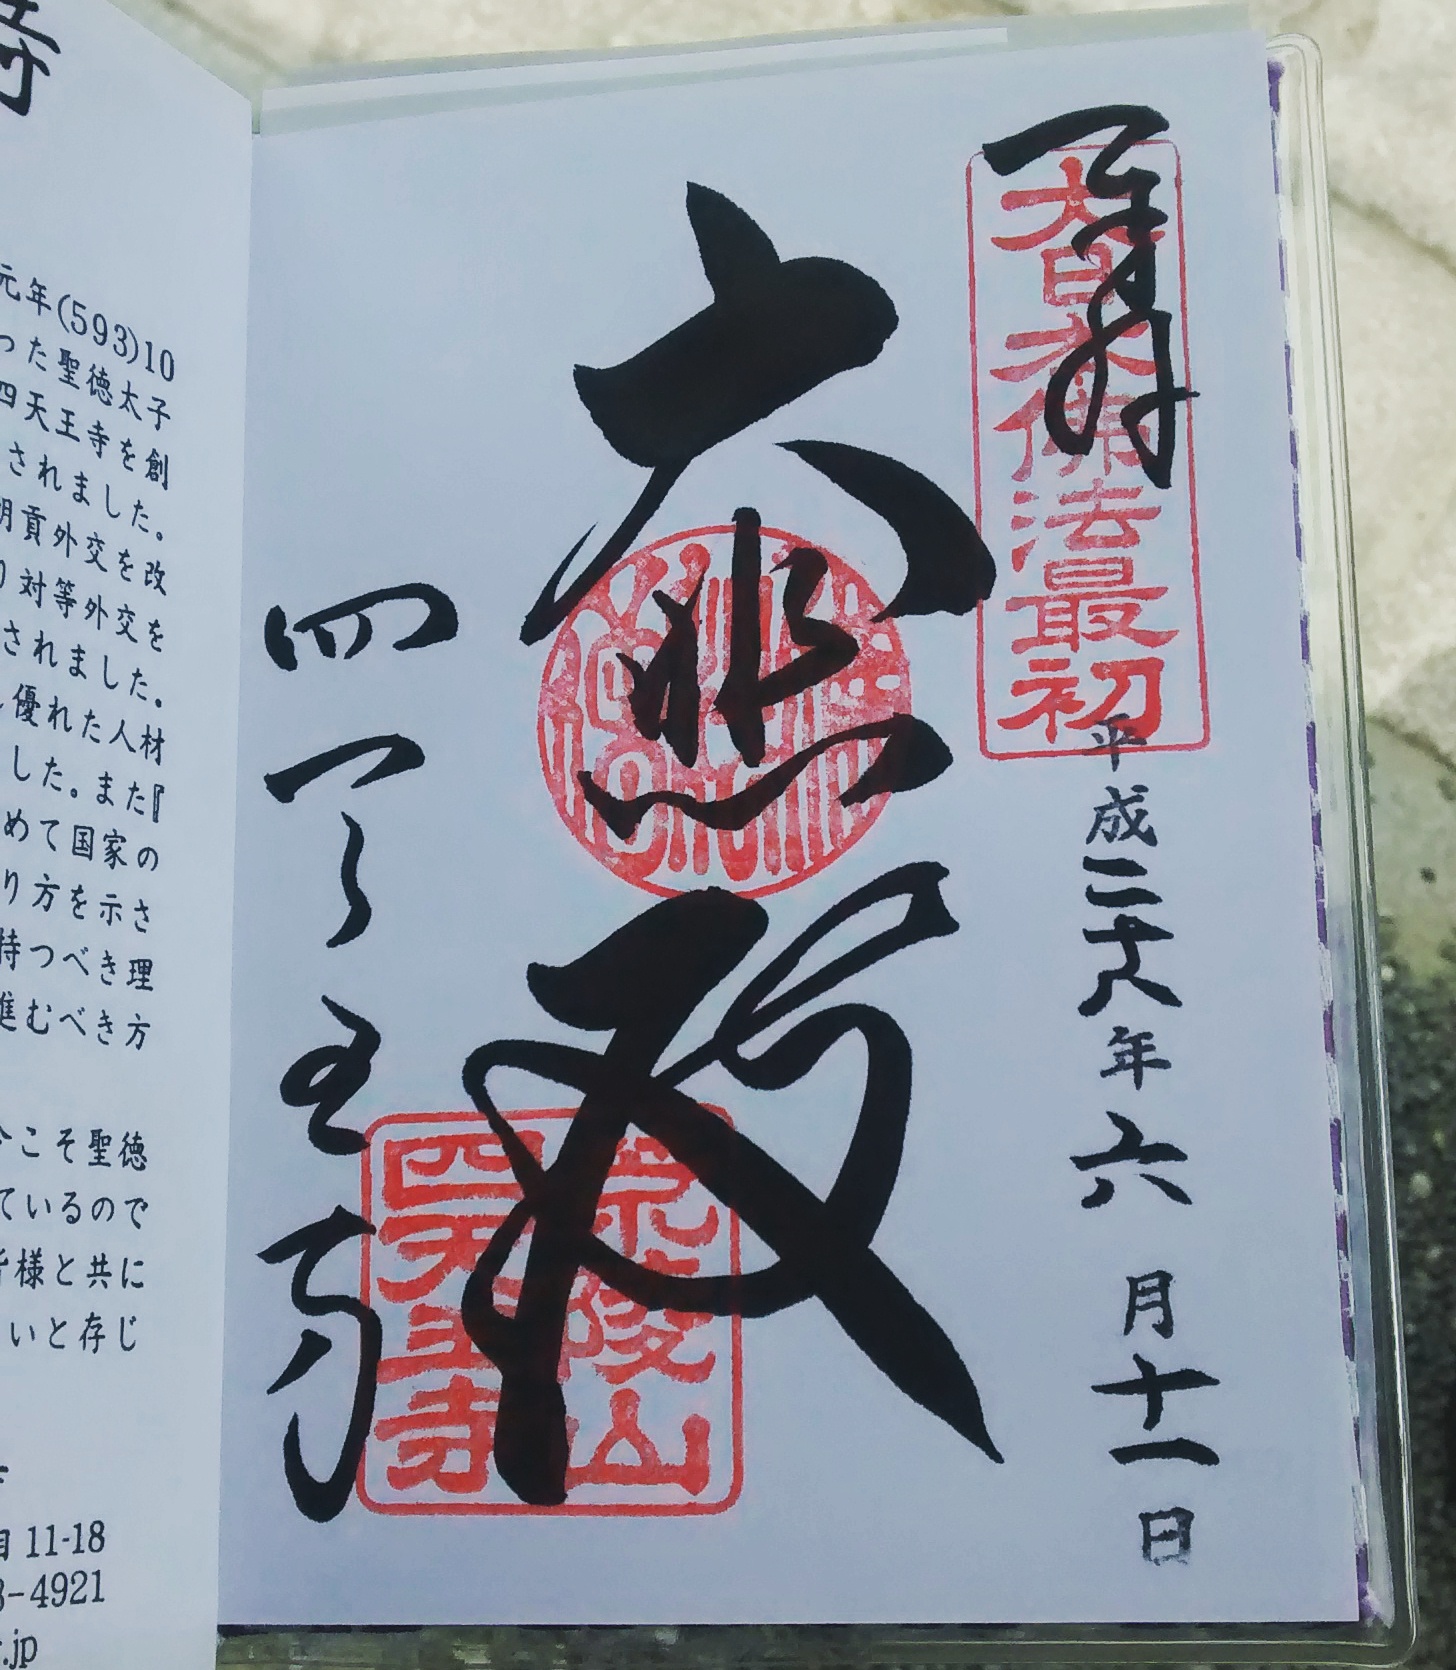 寺
元年(593)10
った聖徳太子
四天王寺を創
されました。
朝貢外交を改
)対等外交を
されました。
優れた人材
した。また『
めて国家の
り方を示さ
持つべき理
進むべき方
今こそ聖徳
ているので
皆様と共に
いと存じ
目 11-18
-4921
.jp
奉拝
大日本佛法最初
平成二十八年六月十一日
大悲殿
荒陵山
四天王寺
四天王寺